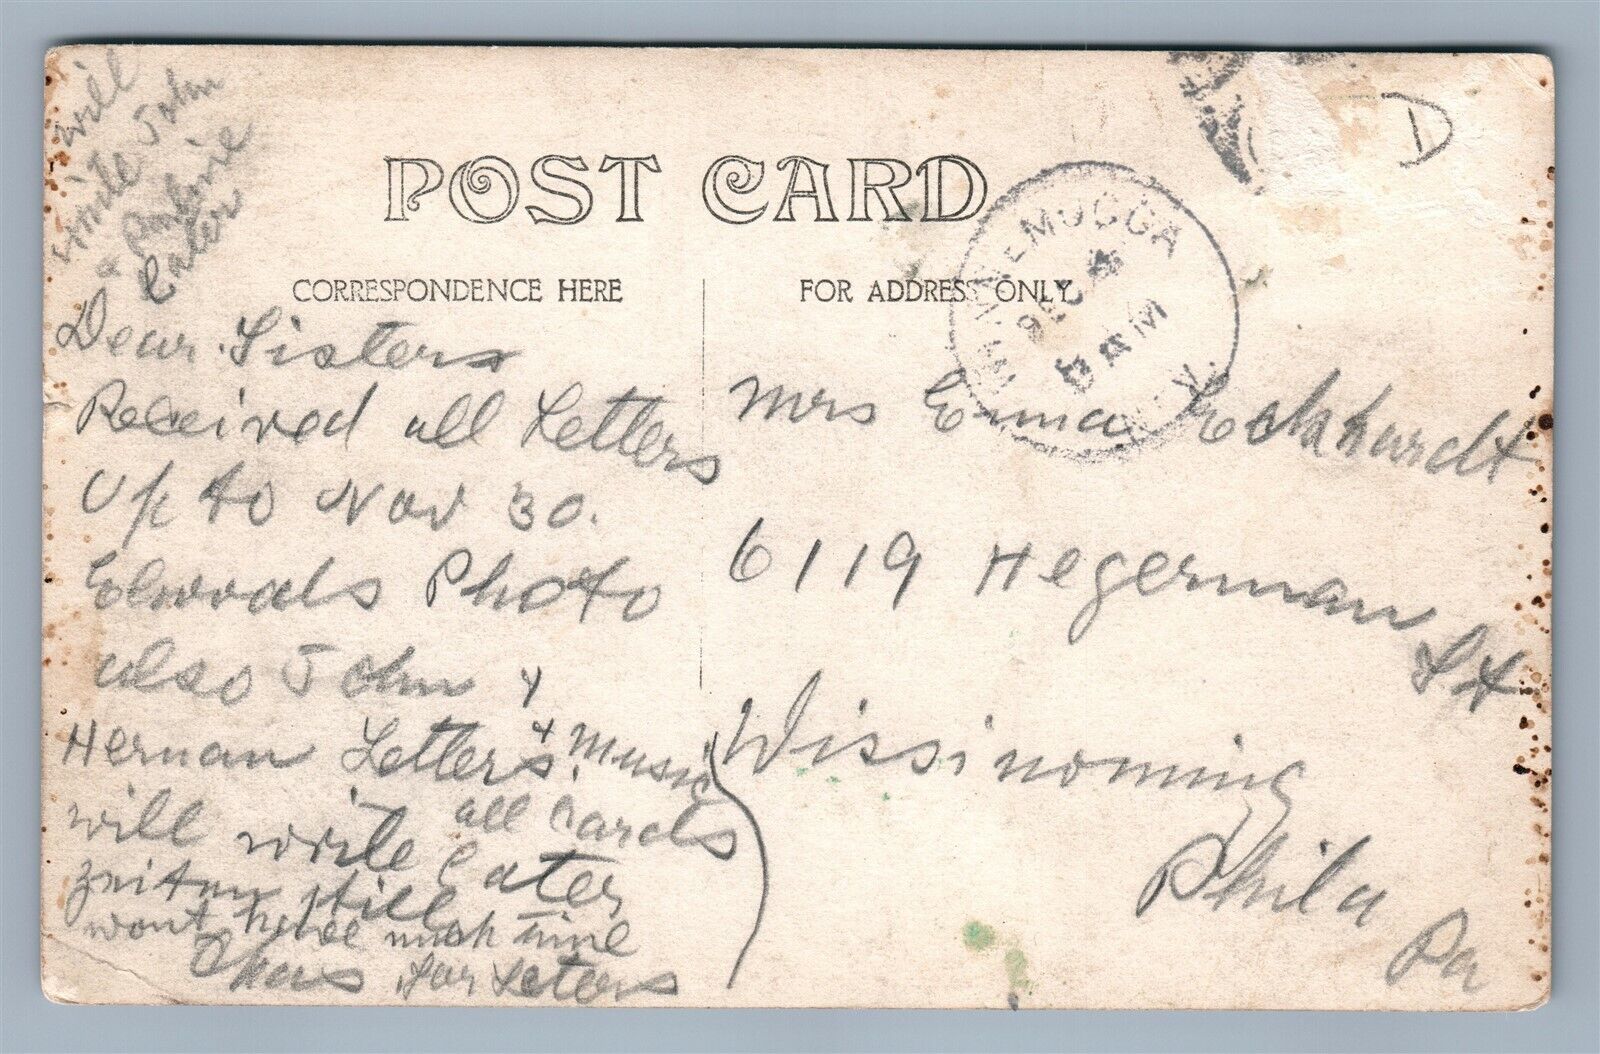 will
write John
&
Later
POST CARD
CORRESPONDENCE HERE
FOR ADDRESS ONLY
WINNEMUCCA
DEC
AM
NEV.
D
Dear Sisters
Received all Letters
Up to Nov 30.
Elwoods Photo
also John &
Herman Letters & Music
all Cards
will write Later
still
wont have much time
Chas for Letters
Mrs Emma Eckhardt
6119 Hegerman
St
Wissinoming
Phila
Pa